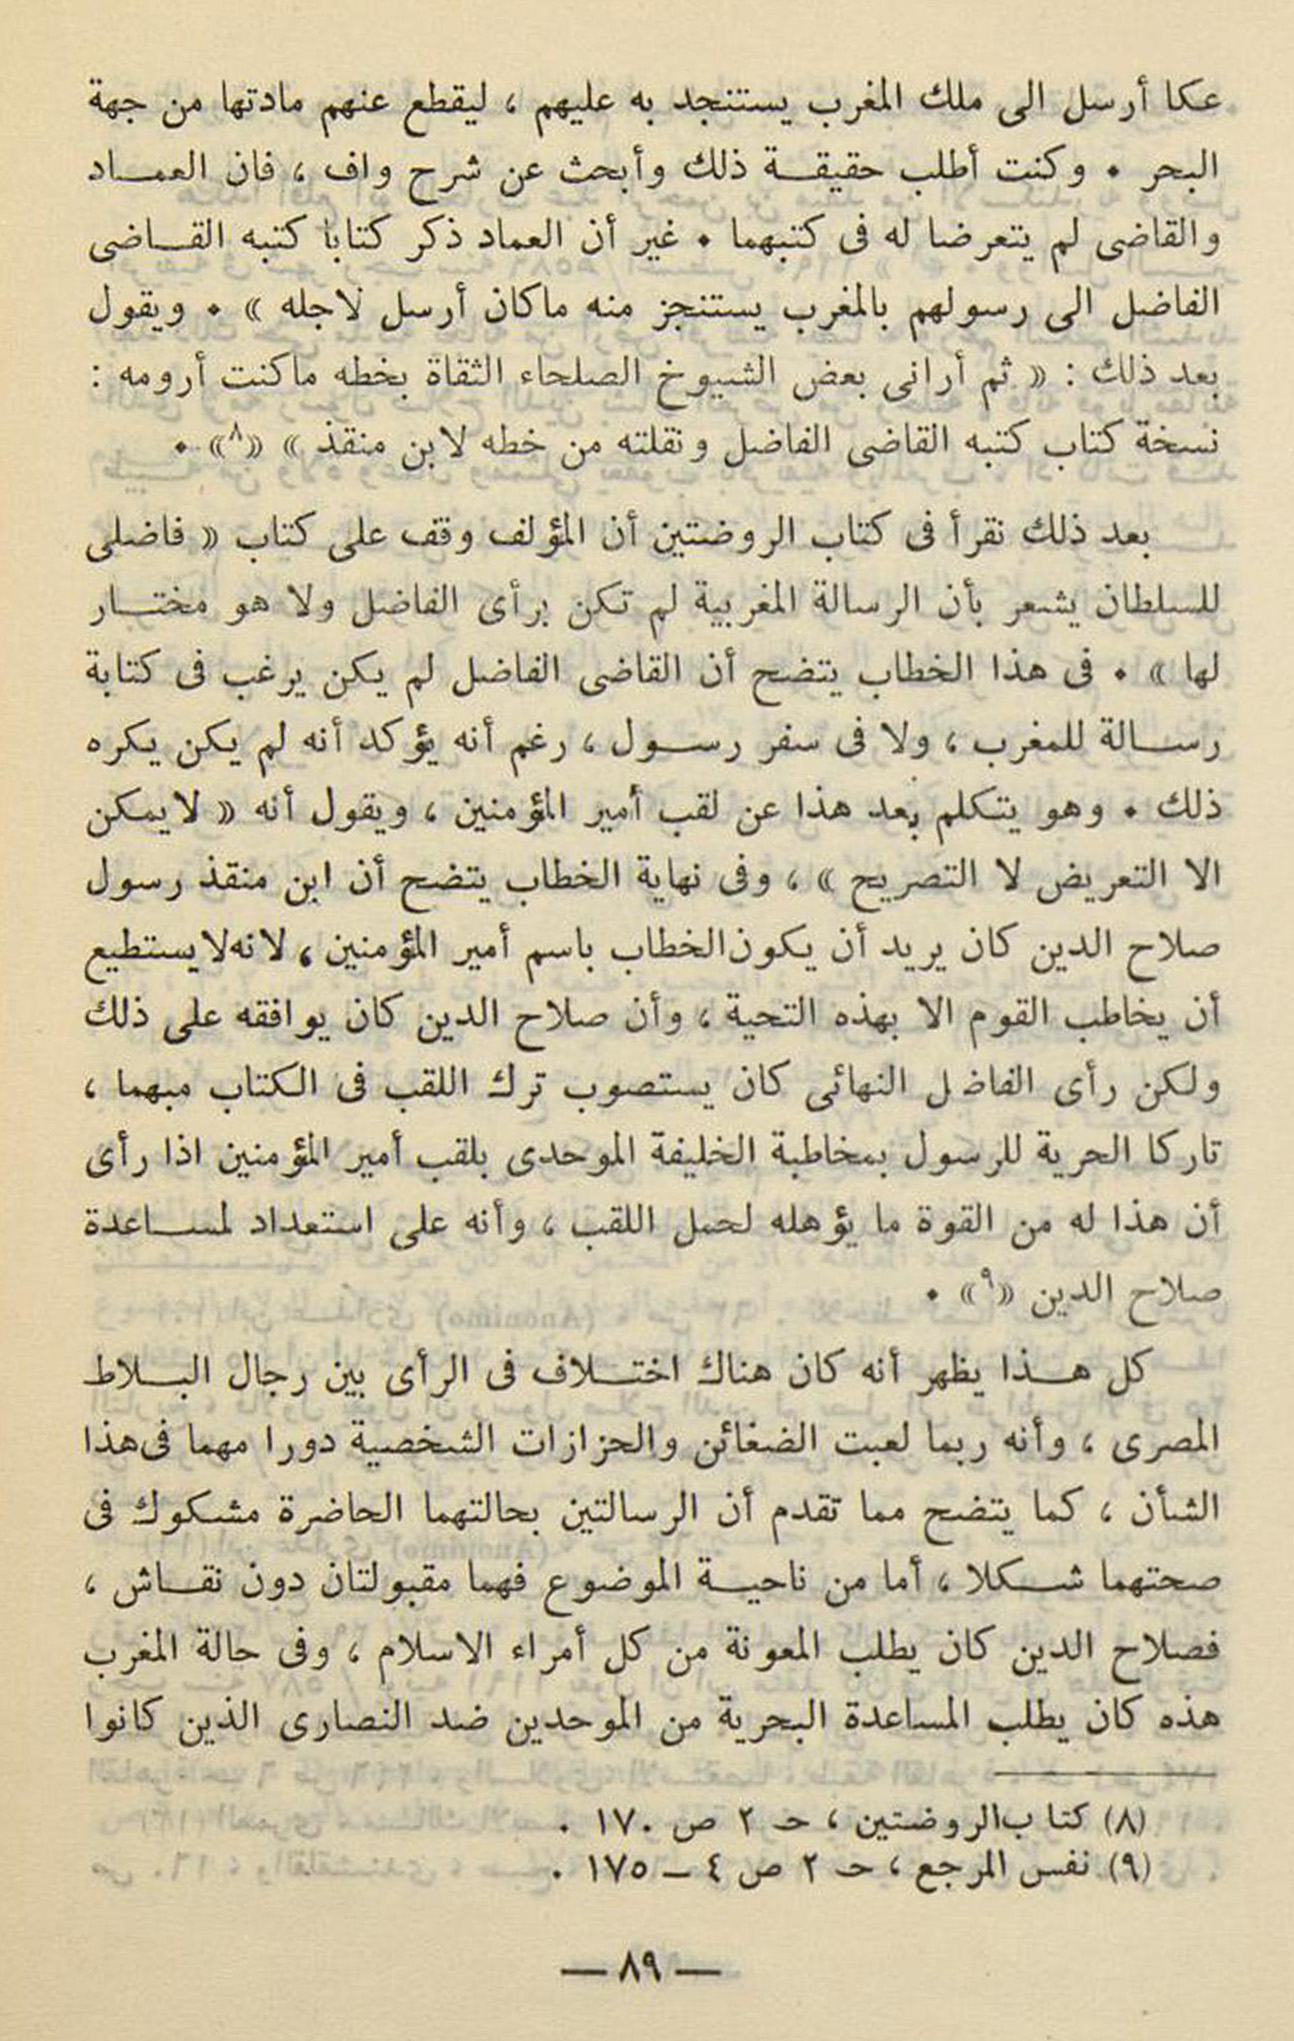 عكا أرسل الى ملك المغرب يستنجد به عليهم ، ليقطع عنهم مادتها من جهة
البحر • وكنت أطلب حقيقة ذلك وأبحث عن شرح واف ، فان العماد
والقاضى لم يتعرضا له فى كتبهما • غير أن العماد ذكر كتابا كتبه القاضى
الفاضل الى رسولهم بالمغرب يستنجز منه ماكان أرسل لاجله » • ويقول
بعد ذلك : « ثم أرانى بعض الشيوخ الصلحاء الثقاة بخطه ماكنت أرومه :
نسخة كتاب كتبه القاضى الفاضل ونقلته من خطه لابن منقذ » «٨» •
بعد ذلك نقرأ فى كتاب الروضتين أن المؤلف وقف على كتاب « فاضلى
للسلطان يشعر بأن الرسالة المغربية لم تكن برأى الفاضل ولا هو مختار
لها » • فى هذا الخطاب يتضح أن القاضى الفاضل لم يكن يرغب فى كتابة
رسالة للمغرب ، ولا فى سفر رسول ، رغم أنه يؤكد أنه لم يكن يكره
ذلك • وهو يتكلم بعد هذا عن لقب أمير المؤمنين ، ويقول أنه « لايمكن
الا التعريض لا التصريح » ، وفى نهاية الخطاب يتضح أن ابن منقذ رسول
صلاح الدين كان يريد أن يكون الخطاب باسم أمير المؤمنين ، لانه لايستطيع
أن يخاطب القوم الا بهذه التحية ، وأن صلاح الدين كان يوافقه على ذلك
ولكن رأى الفاضل النهائى كان يستصوب ترك اللقب فى الكتاب مبهما ،
تاركا الحرية للرسول بمخاطبة الخليفة الموحدى بلقب أمير المؤمنين اذا رأى
أن هذا له من القوة ما يؤهله لحمل اللقب ، وأنه على استعداد لمساعدة
صلاح الدين «٩» •
كل هذا يظهر أنه كان هناك اختلاف فى الرأى بين رجال البلاط
المصرى ، وأنه ربما لعبت الضغائن والحزازات الشخصية دورا مهما فى هذا
الشأن ، كما يتضح مما تقدم أن الرسالتين بحالتهما الحاضرة مشكوك فى
صحتهما شكلا ، أما من ناحية الموضوع فهما مقبولتان دون نقاش ،
فصلاح الدين كان يطلب المعونة من كل أمراء الاسلام ، وفى حالة المغرب
هذه كان يطلب المساعدة البحرية من الموحدين ضد النصارى الذين كانوا
(٨) كتاب الروضتين ، حـ ٢ ص ١٧٠ .
(٩) نفس المرجع ، حـ ٢ ص ٤ – ١٧٥ .
— ٨٩ —